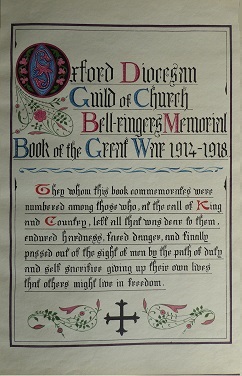 Oxford Diocesan
Guild of Church
Bell-ringers Memorial
Book of the Great War 1914-1918
They whom this book commemorates were
numbered among those who, at the call of King
and Country, left all that was dear to them,
endured hardness, faced danger, and finally
passed out of the sight of men by the path of duty
and self sacrifice giving up their own lives
that others might live in freedom.